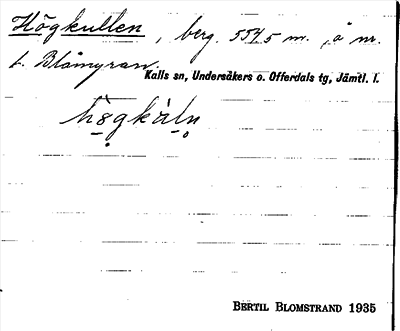 Högkullen, berg. 554,5 m. å nr.
t. Blåmyran.
Kalls sn, Undersåkers o. Offerdals tg, Jämtl. l.
BERTIL BLOMSTRAND 1935